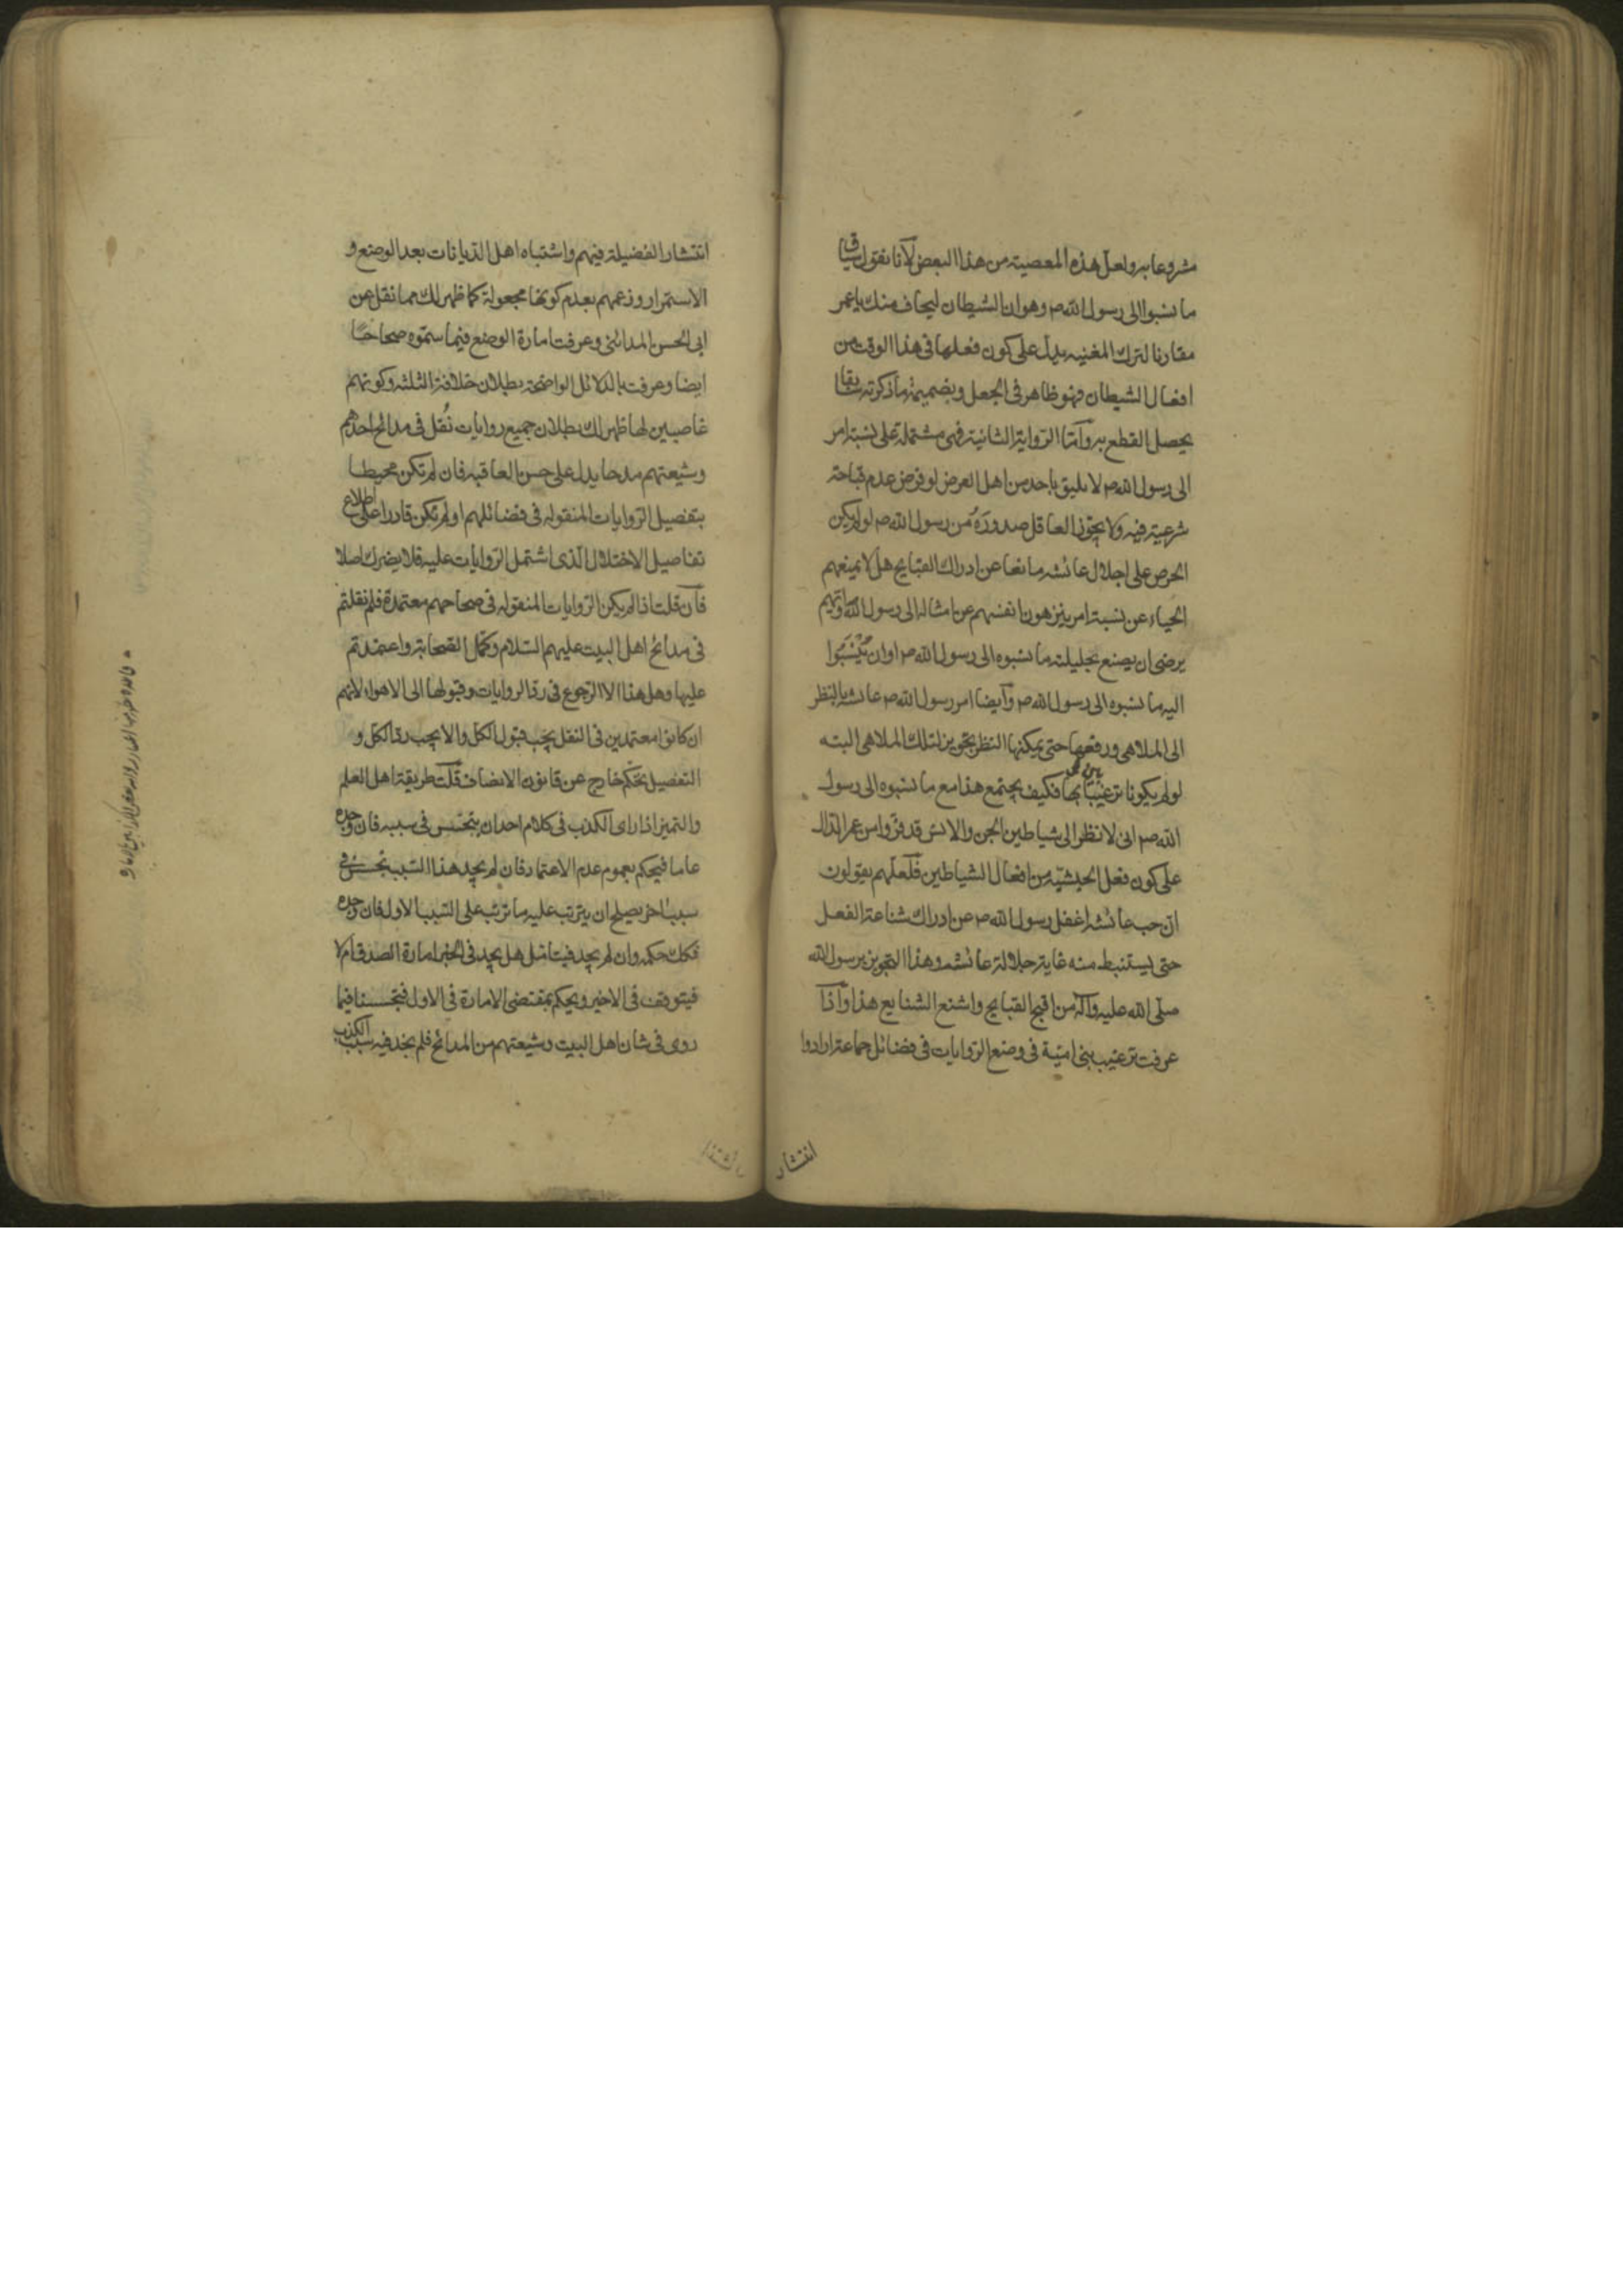 مشروعا به ولعل هذه المعصية من هذا البعض لانا نقول سياق
ما نسبوا الى رسول الله ص وهو ان الشيطان ليخاف منك يا عمر
مقارنا لترك المغنيه يدل على كون فعلها في هذا الوقت من
افعال الشيطان فهو ظاهر في الجعل وبضميمة ما ذكرته سابقا
يحصل القطع به وامّا الرّواية الثانية فهي مشتملة على نسبة امر
الى رسول الله ص لا يليق باحد من اهل العرض لو فرض عدم قباحة
شرعية فيه ولا يجوّز العاقل صدوره من رسول الله ص لو لم يكن
الحرص على اجلال عائشه مانعا عن ادراك القبايح هل لا يمنعهم
الحياء عن نسبة امر ينزهون انفسهم عن امثاله الى رسول الله
يرضى ان يصنع بحليلته ما نسبوه الى رسول الله ص او ان ينسبوا
اليه ما نسبوه الى رسول الله ص وايضا امر رسول الله ص عائشه بالنظر
الى الملاهي ورفعها حتى يمكنها النظر تجويز لتلك الملاهي البته
لو لم يكونا ترغيبا بها فكيف يجتمع هذا مع ما نسبوه الى رسول
الله ص انى لا نظر الى شياطين الجن والانس قد فرّوا من عمر الدّال
على كون فعل الحبشيّه من افعال الشياطين فلعلّهم يقولون
انّ حب عائشه اغفل رسول الله ص عن ادراك شناعة الفعل
حتى يستنبط منه غاية جلالة عائشه وهذا التجويز برسول الله
صلّى الله عليه وآله من اقبح القبايح واشنع الشنايع هذا واذا
عرفت ترغيب بني اميّة في وضع الرّوايات في فضائل جماعة ارادوا
انتشار
انتشار الفضيلة فيهم واشتباه اهل الدّيانات بعد الوضع و
الاستمرار وزعمهم بعدم كونها مجعولة كما ظهر لك مما نقل عن
ابى الحسن المدائنى وعرفت امارة الوضع فيما سمّوه صحاحا
ايضا وعرفت بالدّلائل الواضحة بطلان خلافة الثلثه وكونهم
غاصبين لها ظهر لك بطلان جميع روايات نُقل في مدائح احدهم
وشيعتهم مدحا يدل على حسن العاقبه فان لم تكن محيطا
بتفصيل الرّوايات المنقوله في فضائلهم او لم تكن قادرا على اطلاع
تفاصيل الاختلال الّذى اشتمل الرّوايات عليه فلا يضرك اصلا
فان قلت اذا لم يكن الرّوايات المنقوله في صحاحهم معتمدة فلم نقلتم
في مدائح اهل البيت عليهم السّلام وكمّل الصّحابة واعتمدتم
عليها وهل هذا الا الرّجوع في ردّ الروايات وقبولها الى الاهواء لانهم
ان كانوا معتمدين في النقل يجب قبول الكلّ والا يجب ردّ الكلّ و
التفصيل تحكّم خارج عن قانون الانصاف قلت طريقة اهل العلم
والتميز اذا راى الكذب في كلام احد ان يتجسّس في سببه فان وجده
عاما فيحكم بعموم عدم الاعتماد فان لم يجد هذا السّبب تجسس في
سببا اخر يصلح ان يترتب عليه ما ترتب على السّبب الاول فان وجده
فكك حكمه وان لم يجد فيتامّل هل يجد في الخبر امارة الصدق ام لا
فيتوقف في الاخير ويحكم بمقتضى الامارة في الاول فتجسسنا فيما
روى في شان اهل البيت وشيعتهم من المدائح فلم نجد فيه سبب الكذب